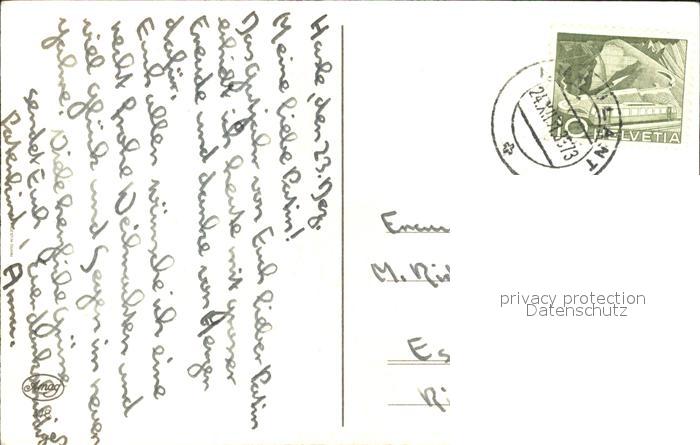 Hasle, den 23. Dez.
Meine liebe Patin!
Das Gutjahr von Euch lieber Patin
erhielt ich heute mit grosser
Freude und danke von Herzen
dafür.
Euch allen wünsche ich eine
recht frohe Weihnachten und
viel Glück und Segen im neuen
Jahre. Viele herzliche Grüsse
sendet Euch Euer dankbares
Patenkind!
Anna.
Amag
24.XII.
HELVETIA
10
Frau
M.
Es
privacy protection
Datenschutz